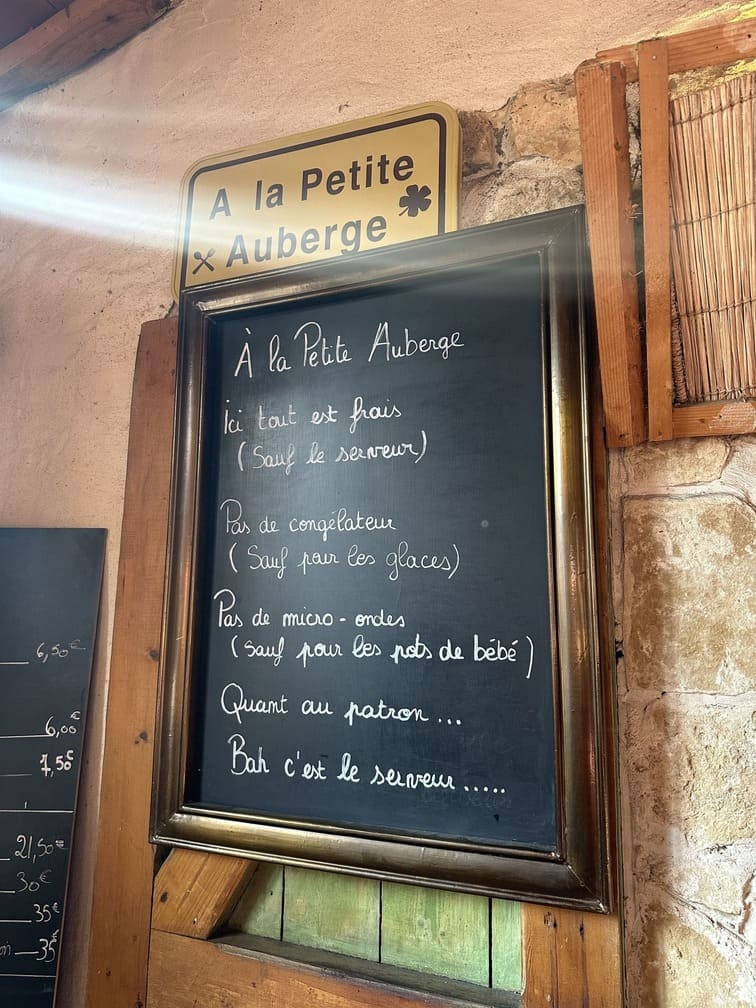 A la Petite
Auberge
À la Petite Auberge
Ici tout est frais
(Sauf le serveur)
Pas de congélateur
(Sauf pour les glaces)
Pas de micro-ondes
(Sauf pour les pots de bébé)
Quant au patron...
Bah c'est le serveur.....
6,50€
6,00€
7,50€
21,50€
30€
35€
35€